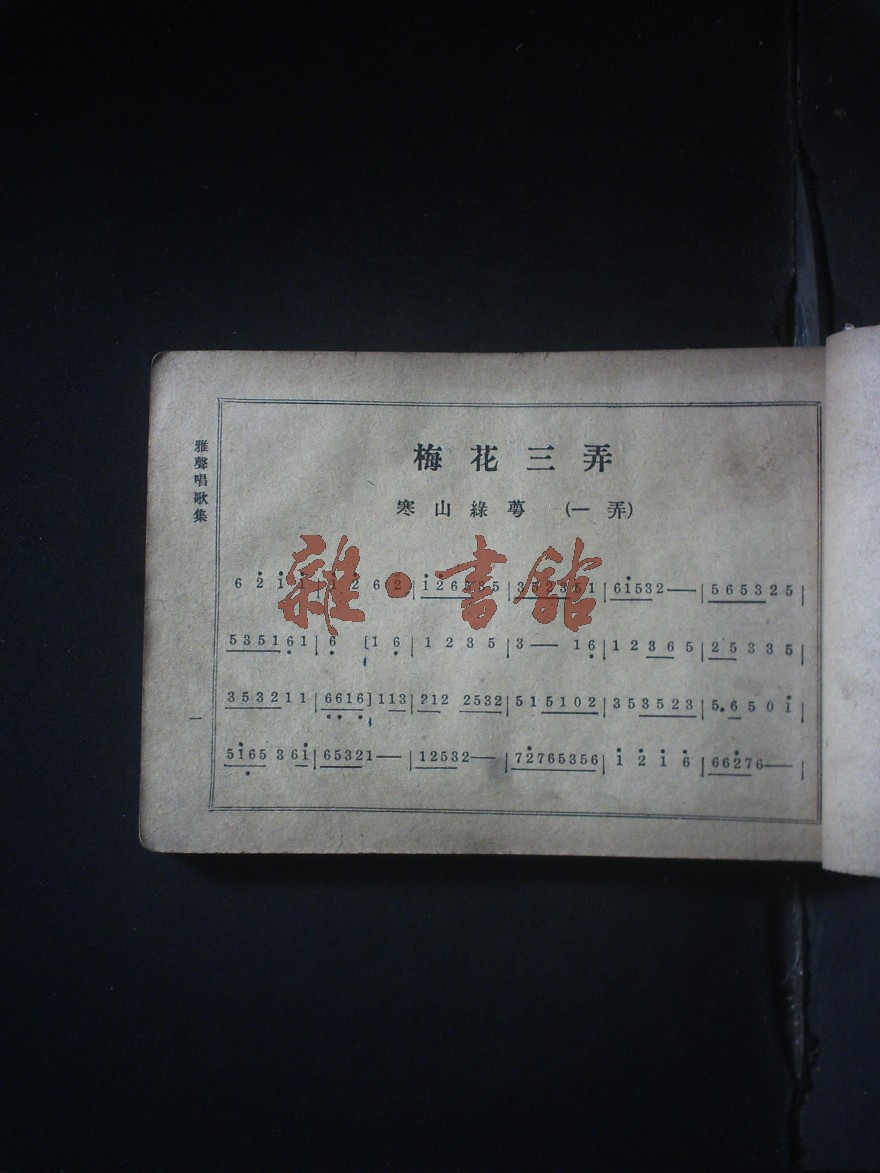 雅聲唱歌集
梅花三弄
寒山綠萼 (一弄)
雜·書館
6 2̇ 1̇ 1̇ | 1̇ 2̇ 6 2̇ | 1̇2̇6535 | 352351 | 61̇532—— | 565325 |
535161 | 6̣ [1 6̣ | 1 2 3 5 | 3—— 16̣ | 1 2 3 6 5 | 2 5 3 3 5 |
3 5 3 2 1 1 | 6̣6̣16̣] 113 | 212 2532 | 515102 | 353523 | 5.6 5 0 1̇ |
51̇65 3 61̇ | 65321—— | 12532—— | 72̇765356 | 1̇ 2̇ 1̇ 6̇ | 662̇76—— |
一